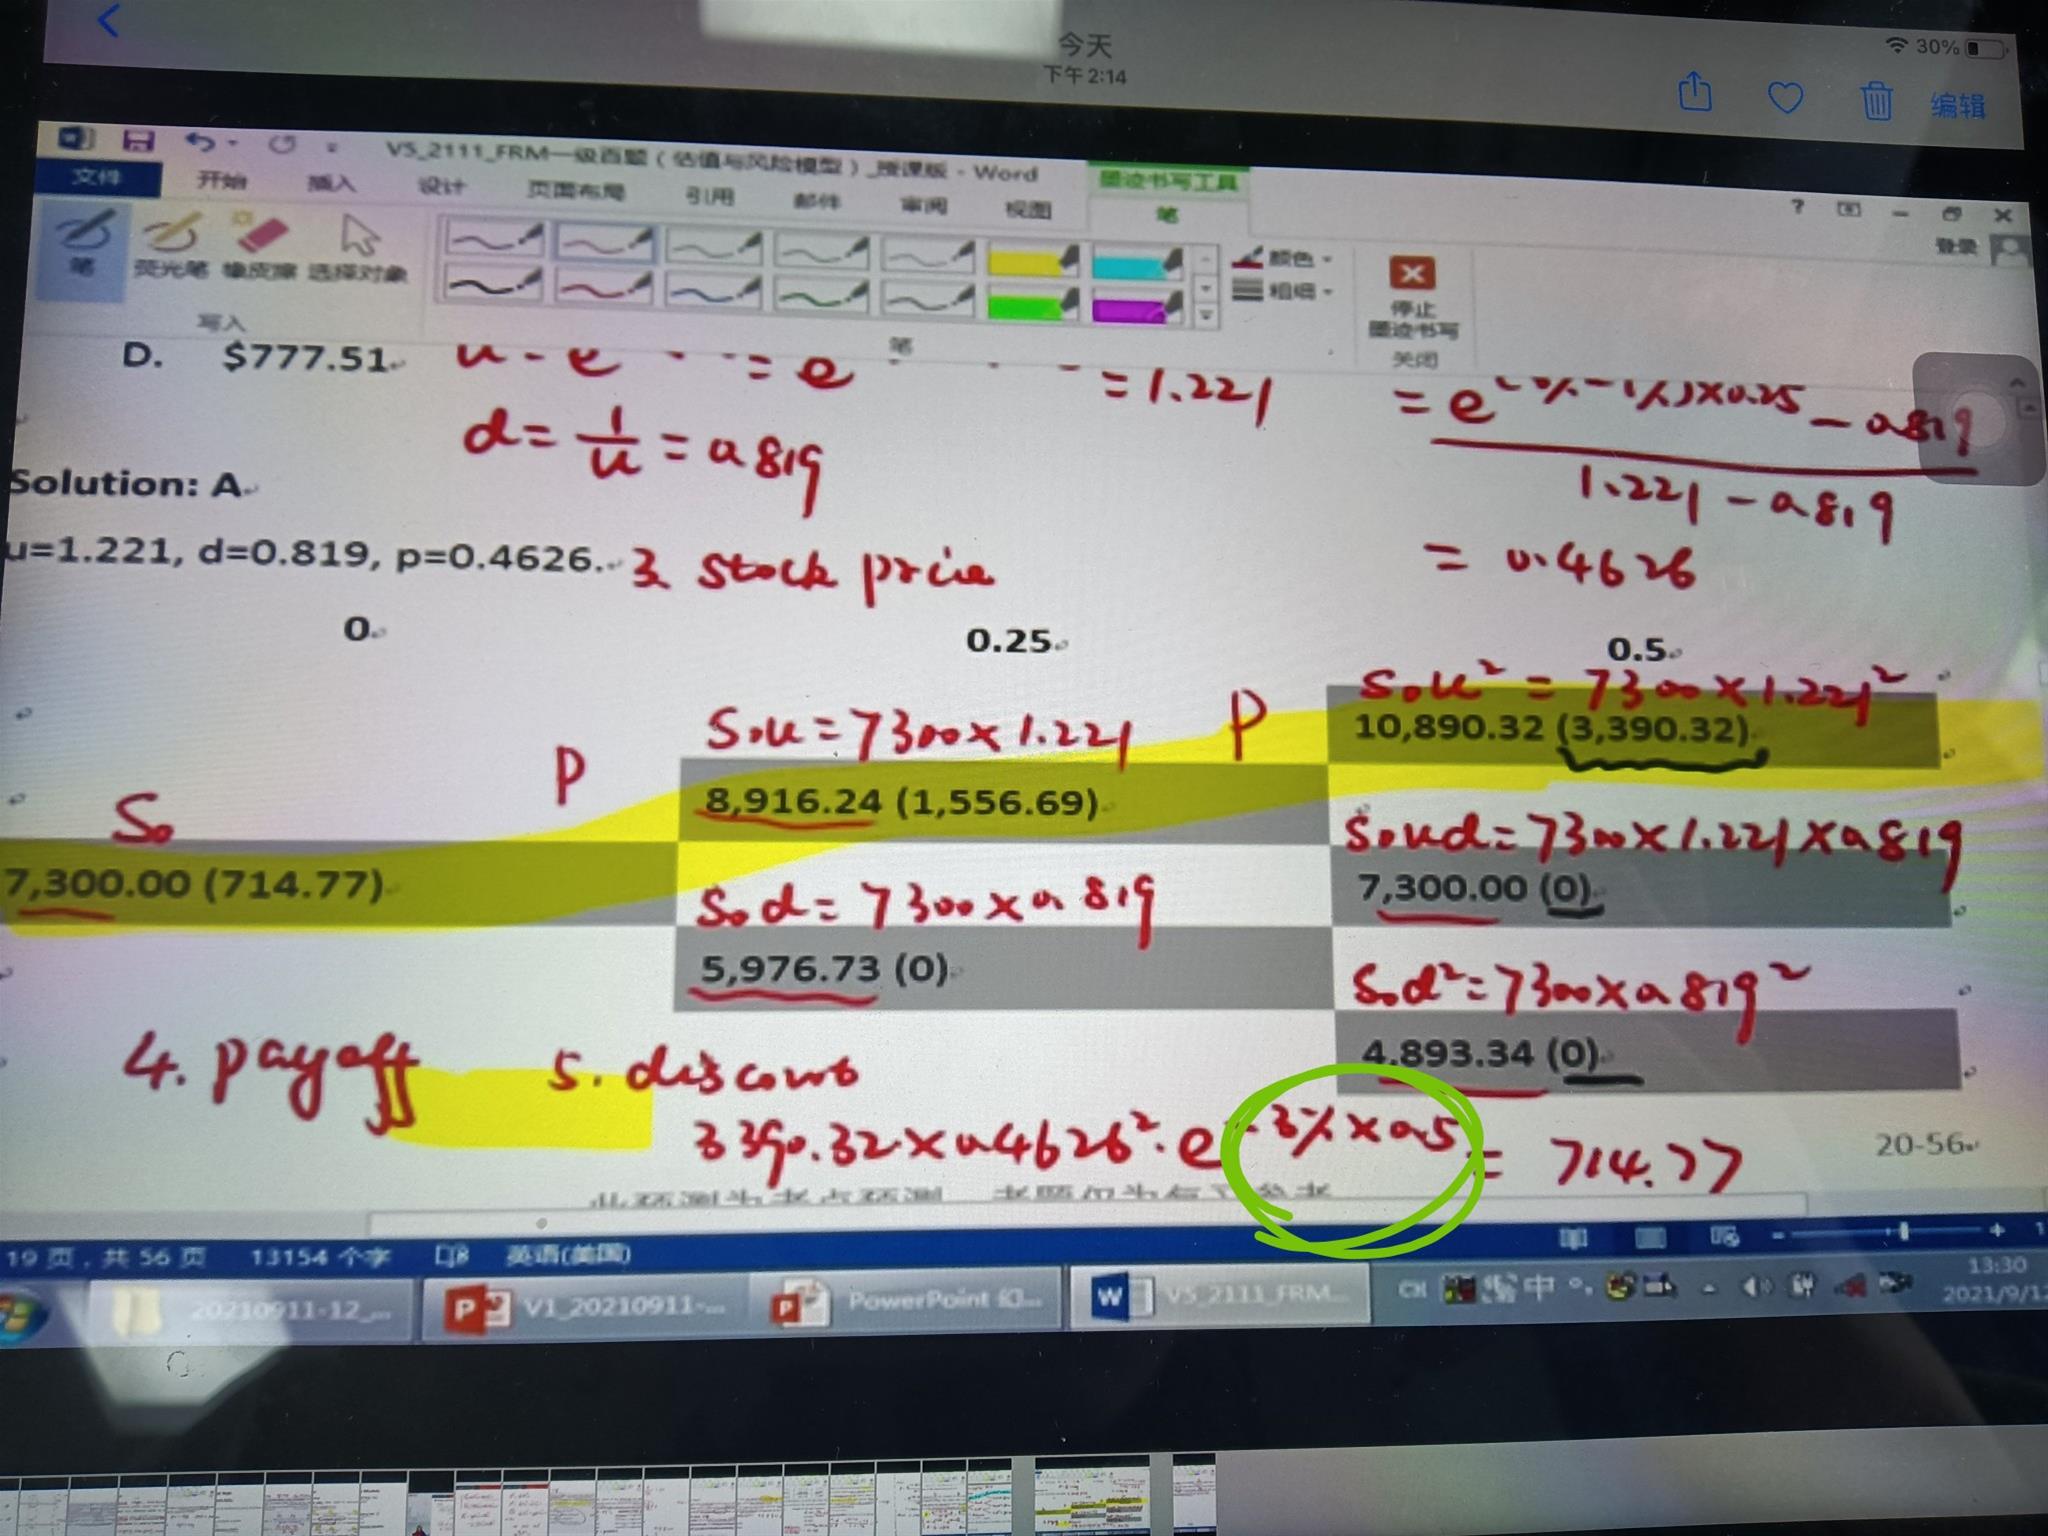 今天
下午2:14
30%
编辑
V5_2111_FRM一级百题（估值与风险模型）_授课版 - Word
墨迹书写工具
文件 开始 插入 设计 页面布局 引用 邮件 审阅 视图 笔
登录
笔 荧光笔 橡皮擦 选择对象
颜色
粗细
停止
墨迹书写
写入 笔 关闭
D. $777.51
= e = 1.221
d = 1/u = 0.819
1.221 - 0.819
= 0.4626
Solution: A
u=1.221, d=0.819, p=0.4626.
3. stock price
0 0.25 0.5
S₀u² = 7300×1.221²
10,890.32 (3,390.32)
S₀u = 7300×1.221
P P
8,916.24 (1,556.69)
S₀ud = 7300×1.221×0.819
S₀
7,300.00 (714.77)
7,300.00 (0)
S₀d = 7300×0.819
5,976.73 (0)
S₀d² = 7300×0.819²
4,893.34 (0)
4. payoff 5. discount
3390.32×0.4626²·e^-3%×0.5 = 714.77
20-56
19 页，共 56 页 13154 个字 英语(美国)
20210911-12_...
V1_20210911-...
PowerPoint 幻...
V5_2111_FRM...
CH 中
13:30
2021/9/12